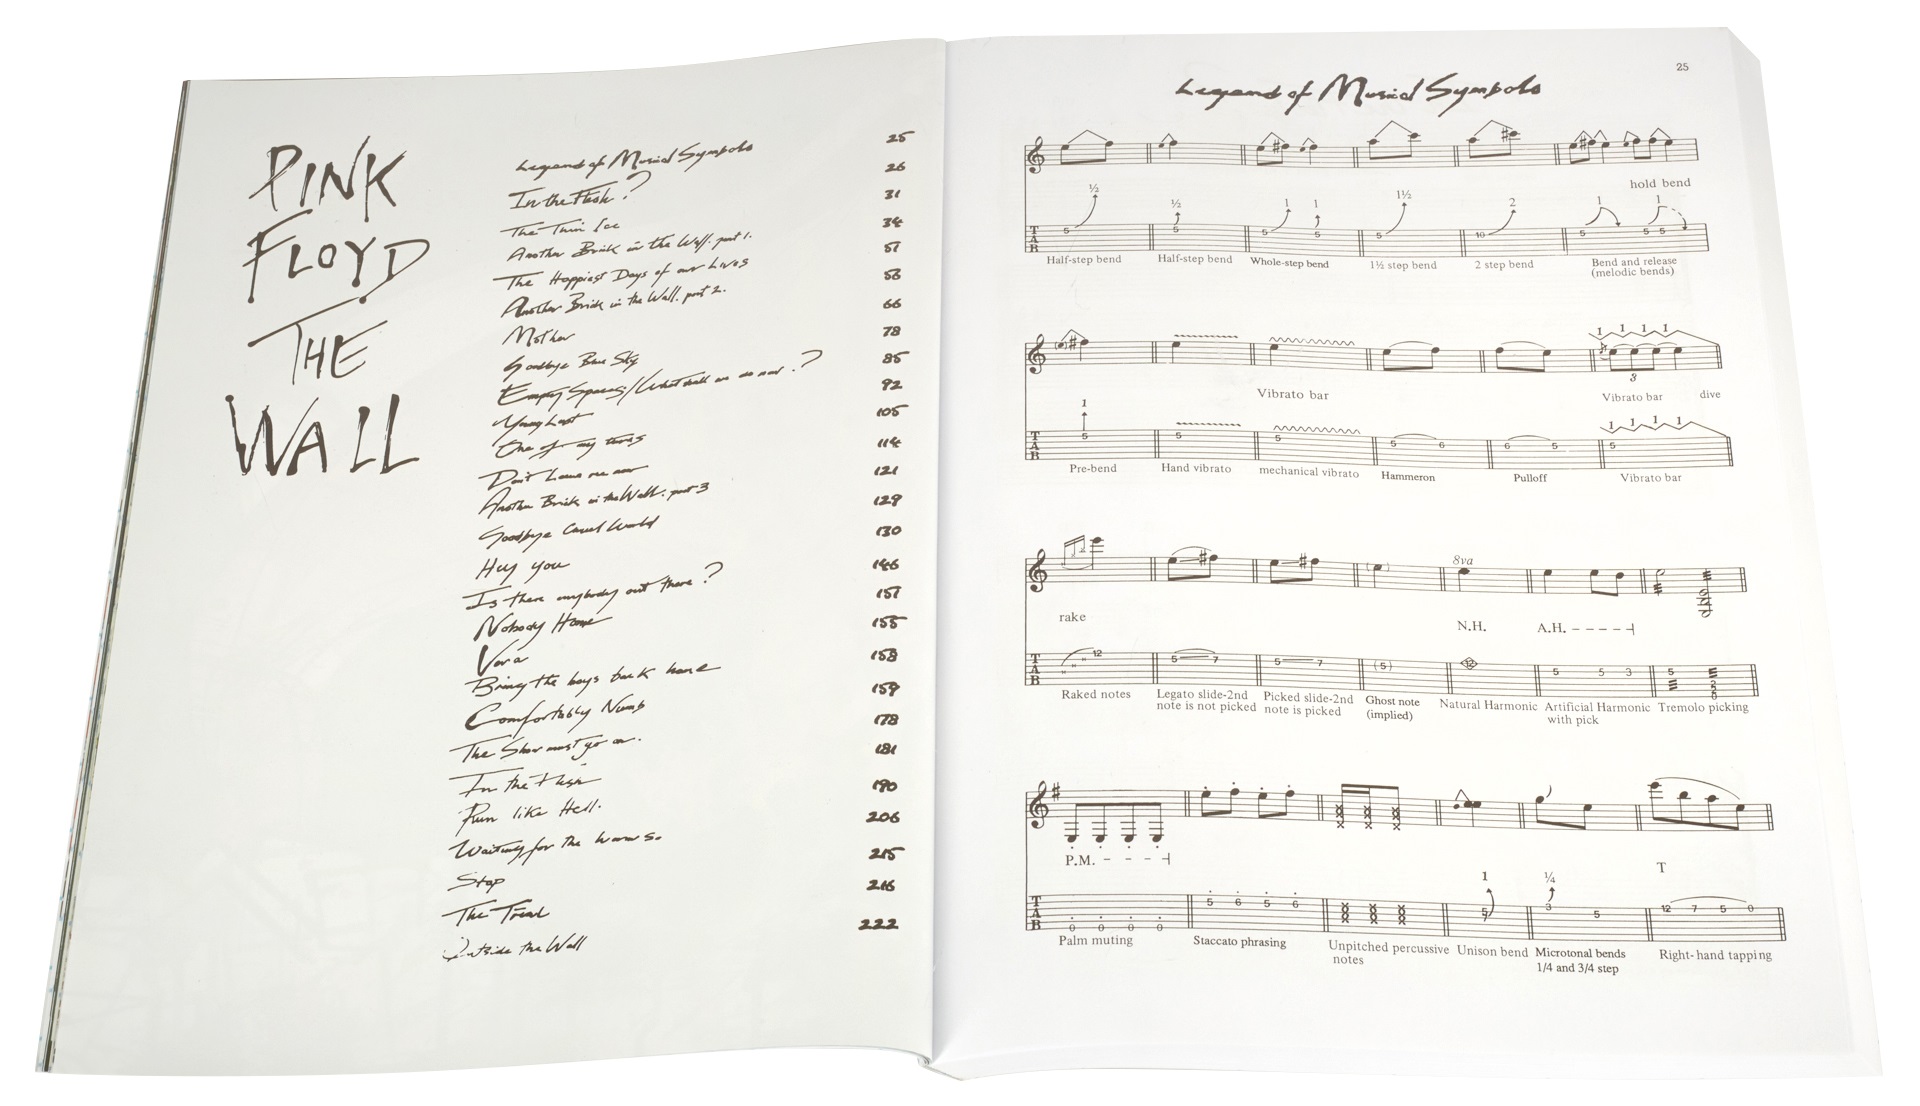 PINK
FLOYD
THE
WALL
Legend of Musical Symbols 25
In the Flesh? 26
The Thin Ice 31
Another Brick in the Wall. part 1. 34
The Happiest Days of our Lives 51
Another Brick in the Wall. part 2. 53
Mother 66
Goodbye Blue Sky 78
Empty Spaces/What shall we do now? 85
Young Lust 92
One of my turns 105
Don't Leave me now 114
Another Brick in the Wall. part 3 121
Goodbye Cruel World 129
Hey you 130
Is there anybody out there? 146
Nobody Home 151
Vera 155
Bring the boys back home 158
Comfortably Numb 159
The Show must go on. 178
In the Flesh 181
Run like Hell. 190
Waiting for the Worms. 206
Stop 215
The Trial 216
Outside the Wall 222
25
Legend of Musical Symbols
hold bend
½ ½ 1 1 1½ 2 1 1
TAB 5 5 5 5 5 10 5 5 5
Half-step bend Half-step bend Whole-step bend 1½ step bend 2 step bend Bend and release
(melodic bends)
1 1 1 1
3
Vibrato bar Vibrato bar dive
1 1 1 1 1
TAB 5 5 5 5 6 6 5 5
Pre-bend Hand vibrato mechanical vibrato Hammeron Pulloff Vibrato bar
8va
rake N.H. A.H. - - - - -
TAB 12 5 7 5 7 (5) 12 5 5 3 5 2 2 0
Raked notes Legato slide-2nd Picked slide-2nd Ghost note Natural Harmonic Artificial Harmonic Tremolo picking
note is not picked note is picked (implied) with pick
P.M. - - - - T
1 ¼
TAB 0 0 0 0 5 6 5 6 x x x 5 3 5 12 7 5 0
Palm muting Staccato phrasing Unpitched percussive Unison bend Microtonal bends Right-hand tapping
notes 1/4 and 3/4 step